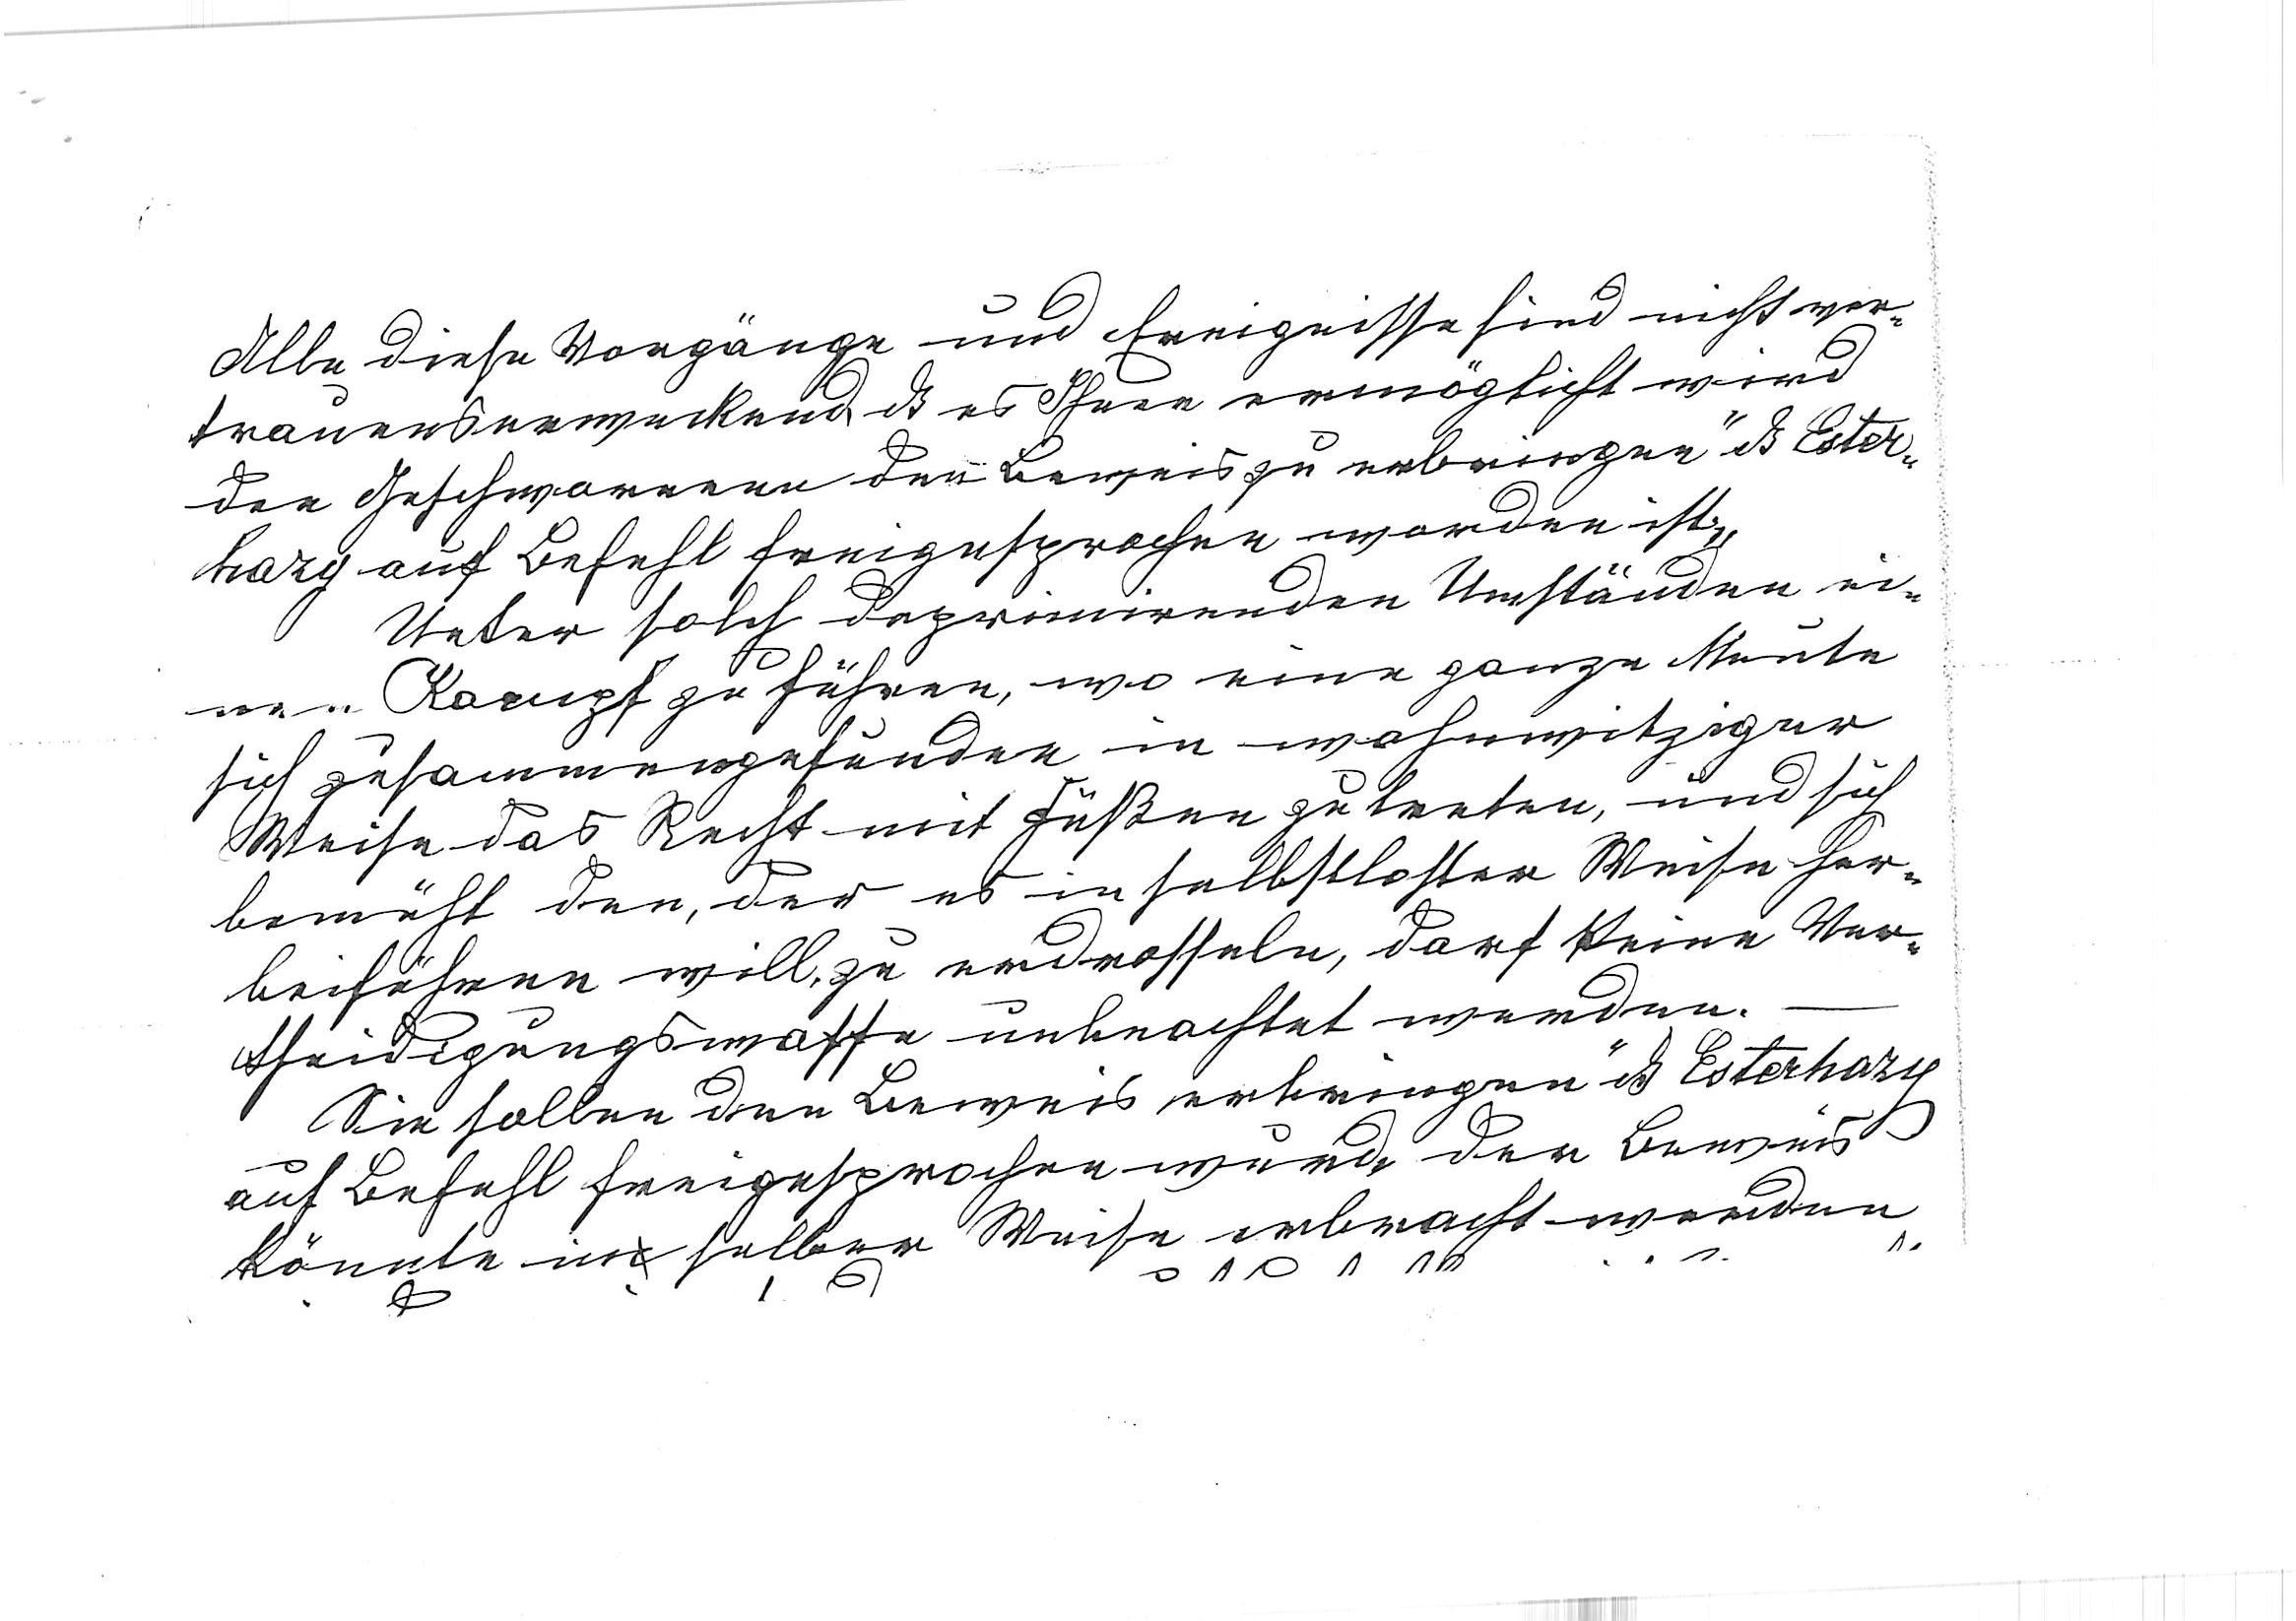 Alle diese Vorgänge und Ereignisse sind nicht ver-
trauenserweckend, dß es Ihnen ermöglicht wird
den Geschworenen den Beweis zu erbringen "dß Ester-
hazy auf Befehl freigesprochen worden ist"
Unter solch deprimirenden Umständen ei-
nen Kampf zu führen, wo eine ganze Meute
sich zusammengefunden in wahnwitziger
Weise das Recht mit Füßen zu treten, und sich
bemüht den, der es in selbstloster Weise her-
beiführen will, zu erdrosseln, darf keine Ver-
theidigungswaffe unbeachtet werden. —
Sie sollen den Beweis erbringen "dß Esterhazy
auf Befehl freigesprochen wurde, der Beweis
könnte in selber Weise erbracht werden